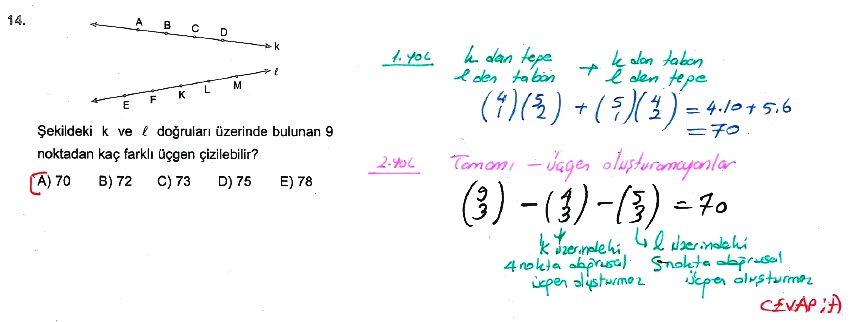 14.
A B C D
k
ℓ
E F K L M
Şekildeki k ve ℓ doğruları üzerinde bulunan 9
noktadan kaç farklı üçgen çizilebilir?
A) 70 B) 72 C) 73 D) 75 E) 78
1. yol k dan tepe → k dan taban
l den taban l den tepe
(4 1)(5 2) + (5 1)(4 2) = 4.10 + 5.6
= 70
2. yol Tamamı - üçgen oluşturamayanlar
(9 3) - (4 3) - (5 3) = 70
k üzerindeki l üzerindeki
4 nokta doğrusal 5 nokta doğrusal
üçgen oluşturmaz üçgen oluşturmaz
CEVAP: A